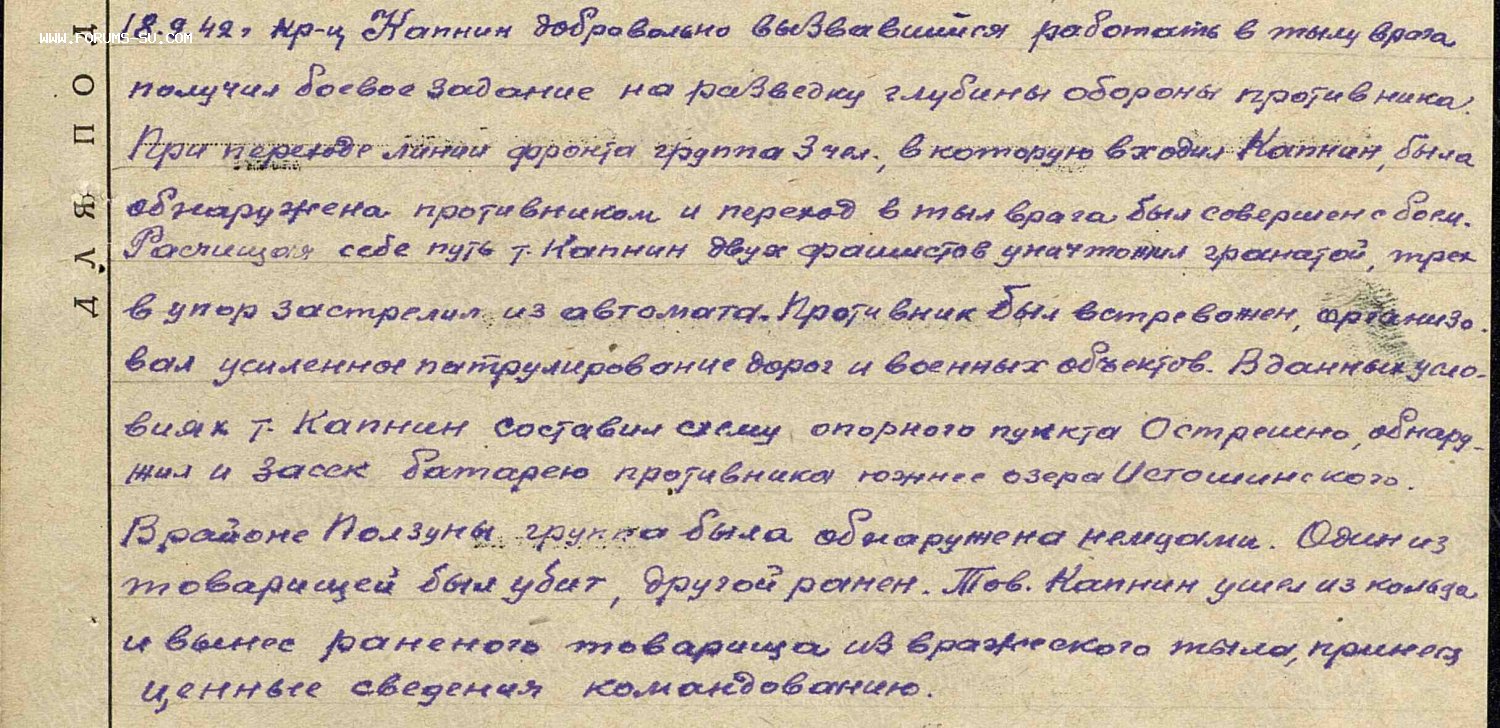 12.9.42г кр-ц Капнин добровольно вызвавшийся работать в тылу врага
WWW.FORUMS-SU.COM
получил боевое задание на разведку глубины обороны противника.
При переходе линии фронта группа 3 чел., в которую входил Капнин, была
обнаружена противником и переход в тыл врага был совершен с боем.
Расчищая себе путь т. Капнин двух фашистов уничтожил гранатой, трех
в упор застрелил из автомата. Противник был встревожен, организо-
вал усиленное патрулирование дорог и военных объектов. В данных усло-
виях т. Капнин составил схему опорного пункта Острешно, обнару-
жил и засек батарею противника южнее озера Истошинского.
В районе Ползуны группа была обнаружена немцами. Один из
товарищей был убит, другой ранен. Тов. Капнин ушел из кольца
и вынес раненого товарища из вражеского тыла, принеся
ценные сведения командованию.
ДЛЯ ПО